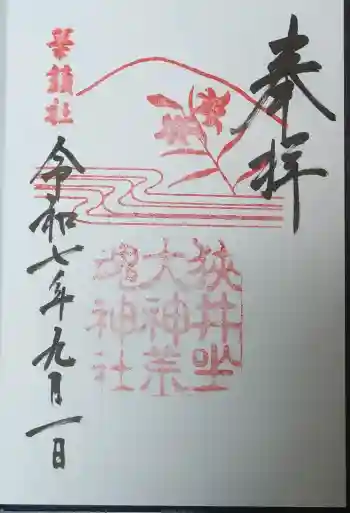 奉拝
狭井坐
大神荒
魂神社
華鎮社
令和七年九月一日